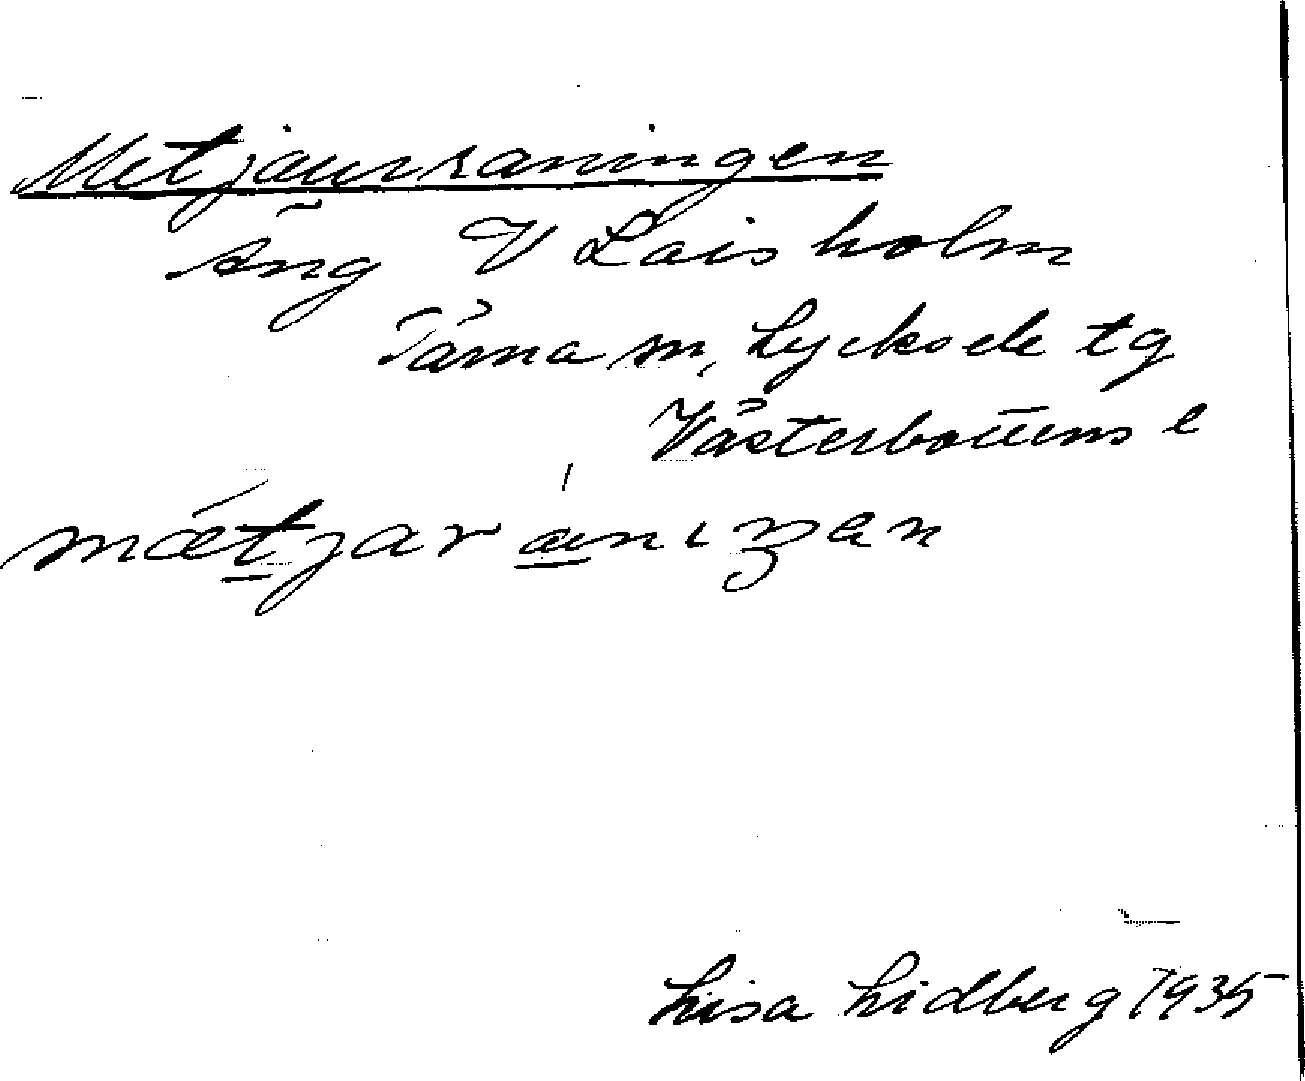 Metjaurraningen
äng V Laisholm
Tärna sn, Lycksele tg
Västerbottens l
Lisa Lidberg 1935